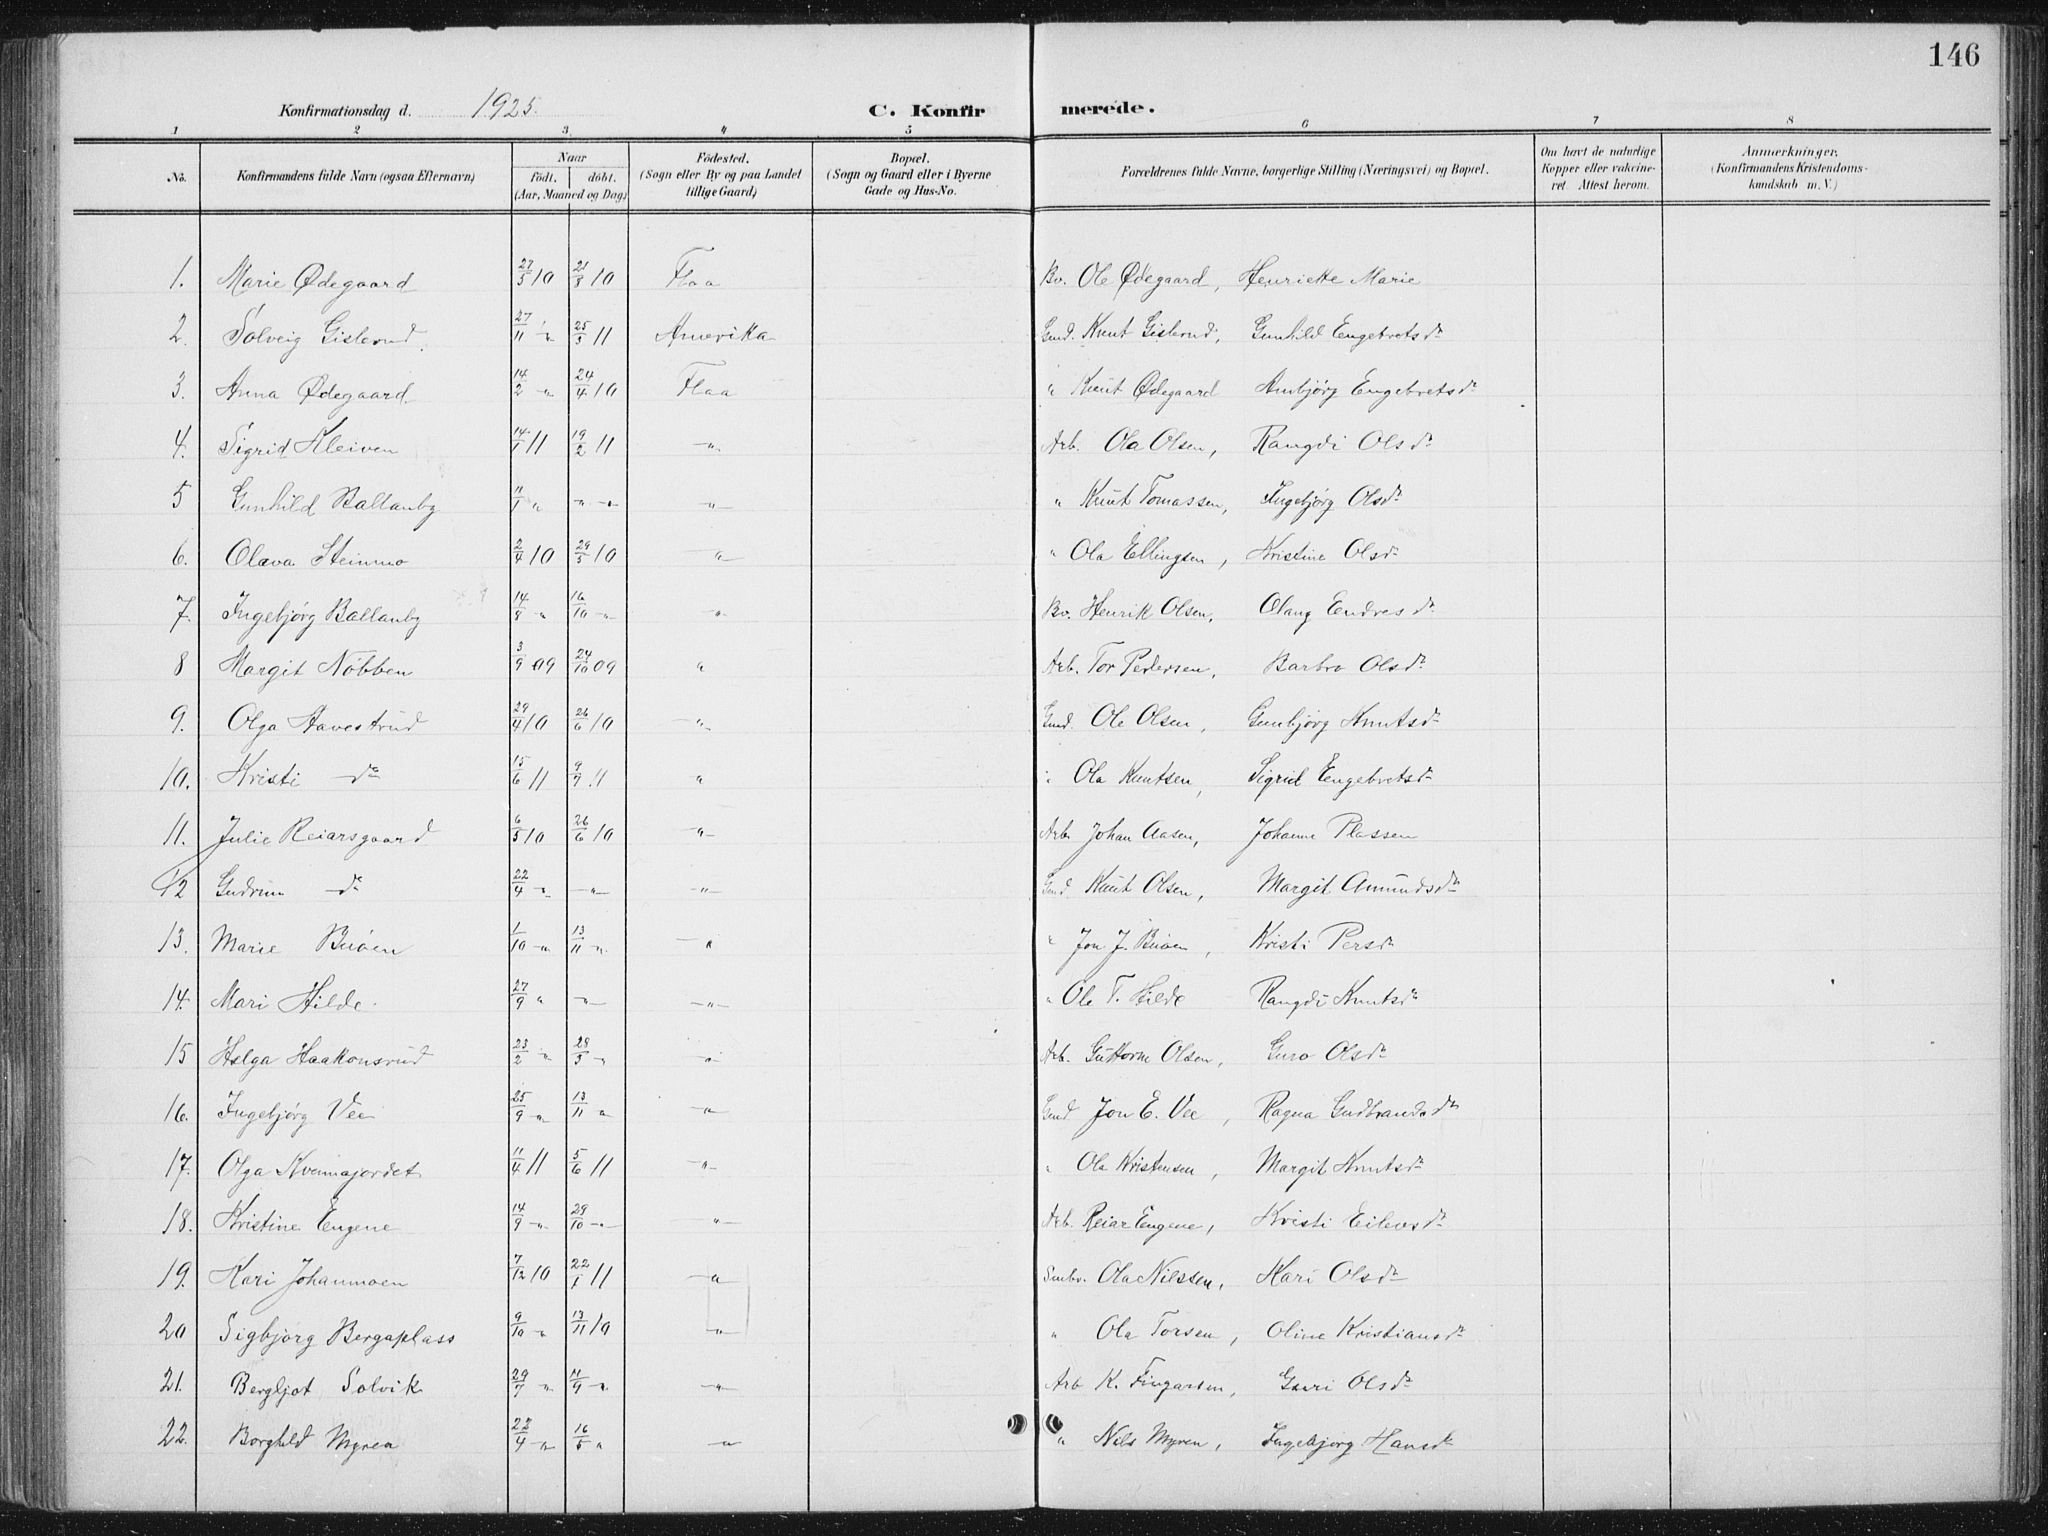 146
Konfirmationsdag d. 1925. C. Konfirmerede.
1 2 3 4 5 6 7 8
No. Konfirmandens fulde Navn (ogsaa Efternavn) Naar födt. döbt. (Aar, Maaned og Dag) Födested. (Sogn eller By og paa Landet tillige Gaard) Bopæl. (Sogn og Gaard eller i Byerne Gade og Hus-No. Forældrenes fulde Navne, borgerlige Stilling (Næringsvei) og Bopæl. Om havt de naturlige Kopper eller vakcineret. Attest herom. Anmærkninger, (Konfirmandens Kristendomskundskab m. V.)
1. Marie Ødegaard 27/5 10 21/8 10 Flaa Bv. Ole Ødegaard, Henriette Marie
2. Solveig Gislerud 27/11 " 25/5 11 Amerika Gmd. Knut Gislerud, Gunhild Engebretsdr
3. Anna Ødegaard 14/2 " 24/4 10 Flaa " Knut Ødegaard Ambjörg Engebretsdr
4. Sigrid Kleiven 14/1 11 19/2 11 " Arb. Ola Olsen, Rangdi Olsdr
5 Gunhild Ballanby 11/1 " " " " " Knut Tomassen, Ingebjörg Olsdr
6. Olava Steinmo 2/4 10 29/5 10 " " Ola Ellingsen, Kristine Olsdr
7. Ingebjörg Ballanby 14/8 " 16/10 " " Bv. Henrik Olsen, Olaug Endresdr
8 Margit Nöbben 3/9 09 24/10 09 " Arb. Tor Pedersen, Barbro Olsdr
9. Olga Havestrud 29/4 10 26/6 10 " Gmd. Ole Olsen, Gunbjörg Knutsdr
10. Kristi do 15/6 11 9/7 11 " " Ola Knutsen, Sigrid Engebretsdr
11. Julie Reiarsgaard 6/5 10 26/6 10 " Arb. Johan Aasen, Johanne Plassen
12 Gudrun do 22/4 " " " Gmd. Knut Olsen, Margit Amundsdr
13. Marie Buöen 1/10 " 13/11 " " " Jon J. Buöen, Kristi Persdr
14. Mari Hilde 27/9 " " " " Ole T. Hilde Rangdi Knutsdr
15 Helga Haakonsrud 23/2 " 28/3 " " Arb. Guttorm Olsen, Guro Olsdr
16. Ingebjörg Vee 25/9 " 13/11 " " Gmd Jon E. Vee, Ragna Gudbrandsdr
17. Olga Kvennajordet 11/4 11 5/6 11 " " Ola Kristensen, Margit Knutsdr
18. Kristine Engene 14/9 " 29/10 " " Arb. Reiar Engene, Kristi Eilevsdr
19. Kari Johanmoen 7/12 10 22/1 11 " Smbr. Ola Nilssen, Kari Olsdr
20 Sigbjörg Bergaplass 9/10 " 13/11 10 " " Ola Torsen, Oline Kristiansdr
21. Bergljot Solvik 29/7 " 11/9 " " Arb K. Fingarsen, Guri Olsdr
22. Borghild Myren 22/4 " 16/5 " " " Nils Myren, Ingebjörg Hansdr